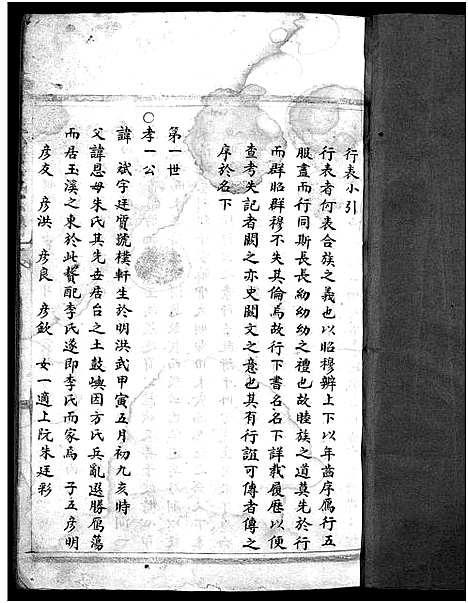 行表小引
行表者何表合族之義也以昭穆辨上下以年齒序鴈行五
服盡而行同斯長長幼幼之禮也故睦族之道莫先於行
而群昭群穆不失其倫為故行下書名名下詳載履歷以便
查考失記者闕之亦史闕文之意也其有行誼可傳者傳之
序於名下
第一世
○孝一公
諱斌字廷質號樸軒生於明洪武甲寅五月初九亥時
父諱恩母朱氏其先世居台之土鼓嶼因方氏兵亂遊勝鴈蕩
而居玉溪之東於此贅配李氏遂即李氏而家焉 子五彥明
彥友 彥洪 彥良 彥欽 女一適上阮朱廷彩